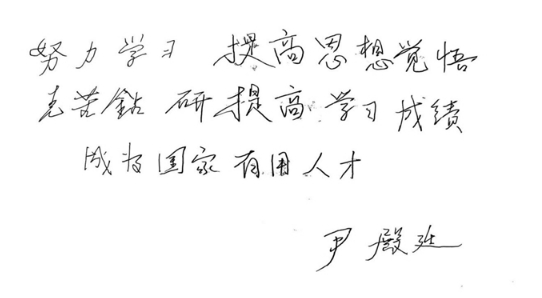 努力学习 提高思想觉悟
克苦鉆研提高学习成绩
成为国家有用人才
尹殿廷